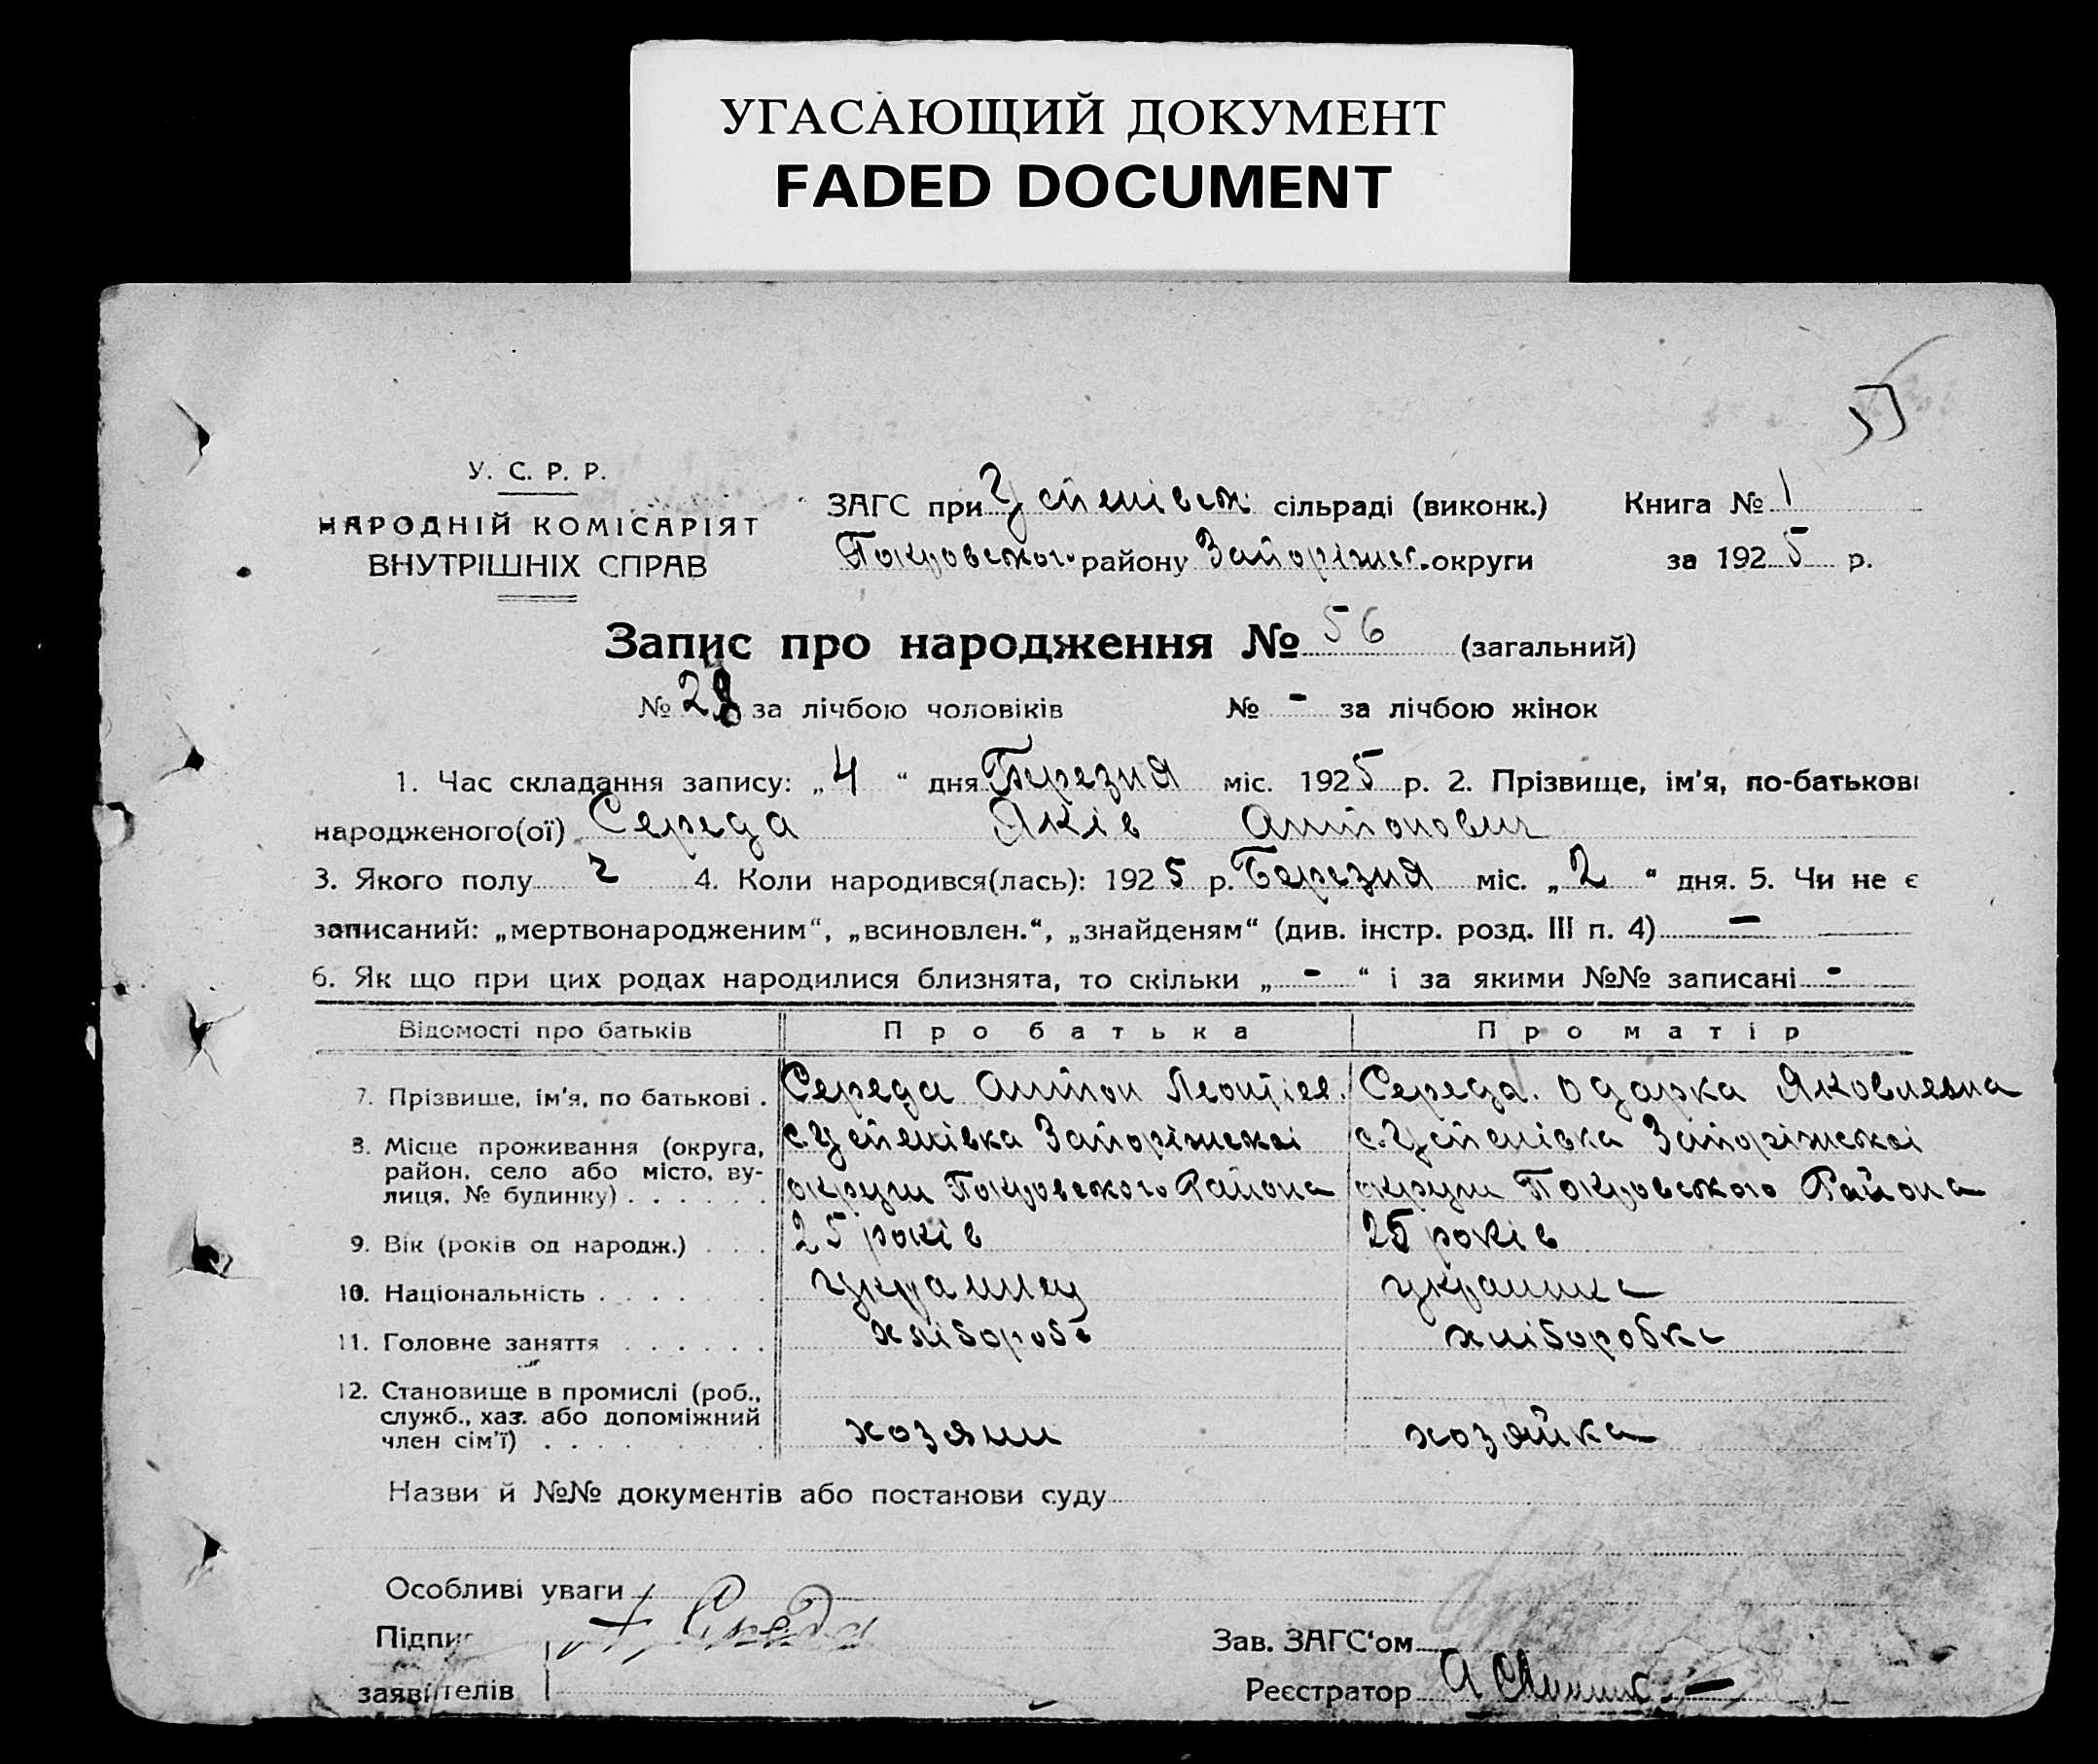 УГАСАЮЩИЙ ДОКУМЕНТ
FADED DOCUMENT
У. С. Р. Р.
НАРОДНІЙ КОМІСАРІЯТ
ВНУТРІШНІХ СПРАВ
ЗАГС при Устенівск. сільраді (виконк.)
Покровського району Запоріжс. округи
Книга № 1
за 1925 р.
Запис про народження № 56 (загальний)
№ 28 за лічбою чоловіків № - за лічбою жінок
1. Час складання запису: „4“ дня Березня міс. 1925 р. 2. Прізвище, ім'я, по-батькові
народженого(ої) Середа Яків Антонович
3. Якого полу ч 4. Коли народився(лась): 1925 р. Березня міс. „2“ дня. 5. Чи не є
записаний: „мертвонародженим“, „всиновлен.“, „знайденям“ (див. інстр. розд. III п. 4) —
6. Як що при цих родах народилися близнята, то скільки „-“ і за якими №№ записані -
Відомості про батьків Про батька Про матір
7. Прізвище, ім'я, по батькові . Середа Антон Леонтіев. Середа. Одарка Яковлевна
8. Місце проживання (округа, с. Устенівка Запоріжскоі с. Устенівка Запоріжскоі
район, село або місто, ву-
лиця, № будинку) . . . . . . округи Покровського Района округи Покровського Района
9. Вік (років од народж.) . . . 25 років 25 років
10. Національність . . . . . . . украинец украинка
11. Головне заняття . . . . . . хлібороб хліборобка
12. Становище в промислі (роб.,
служб., хаз. або допоміжний
член сім'ї) . . . . . . . . хозяин хозяйка
Назви й №№ документів або постанови суду
Особливі уваги
Підпис А. Середа Зав. ЗАГС'ом
заявителів Реєстратор